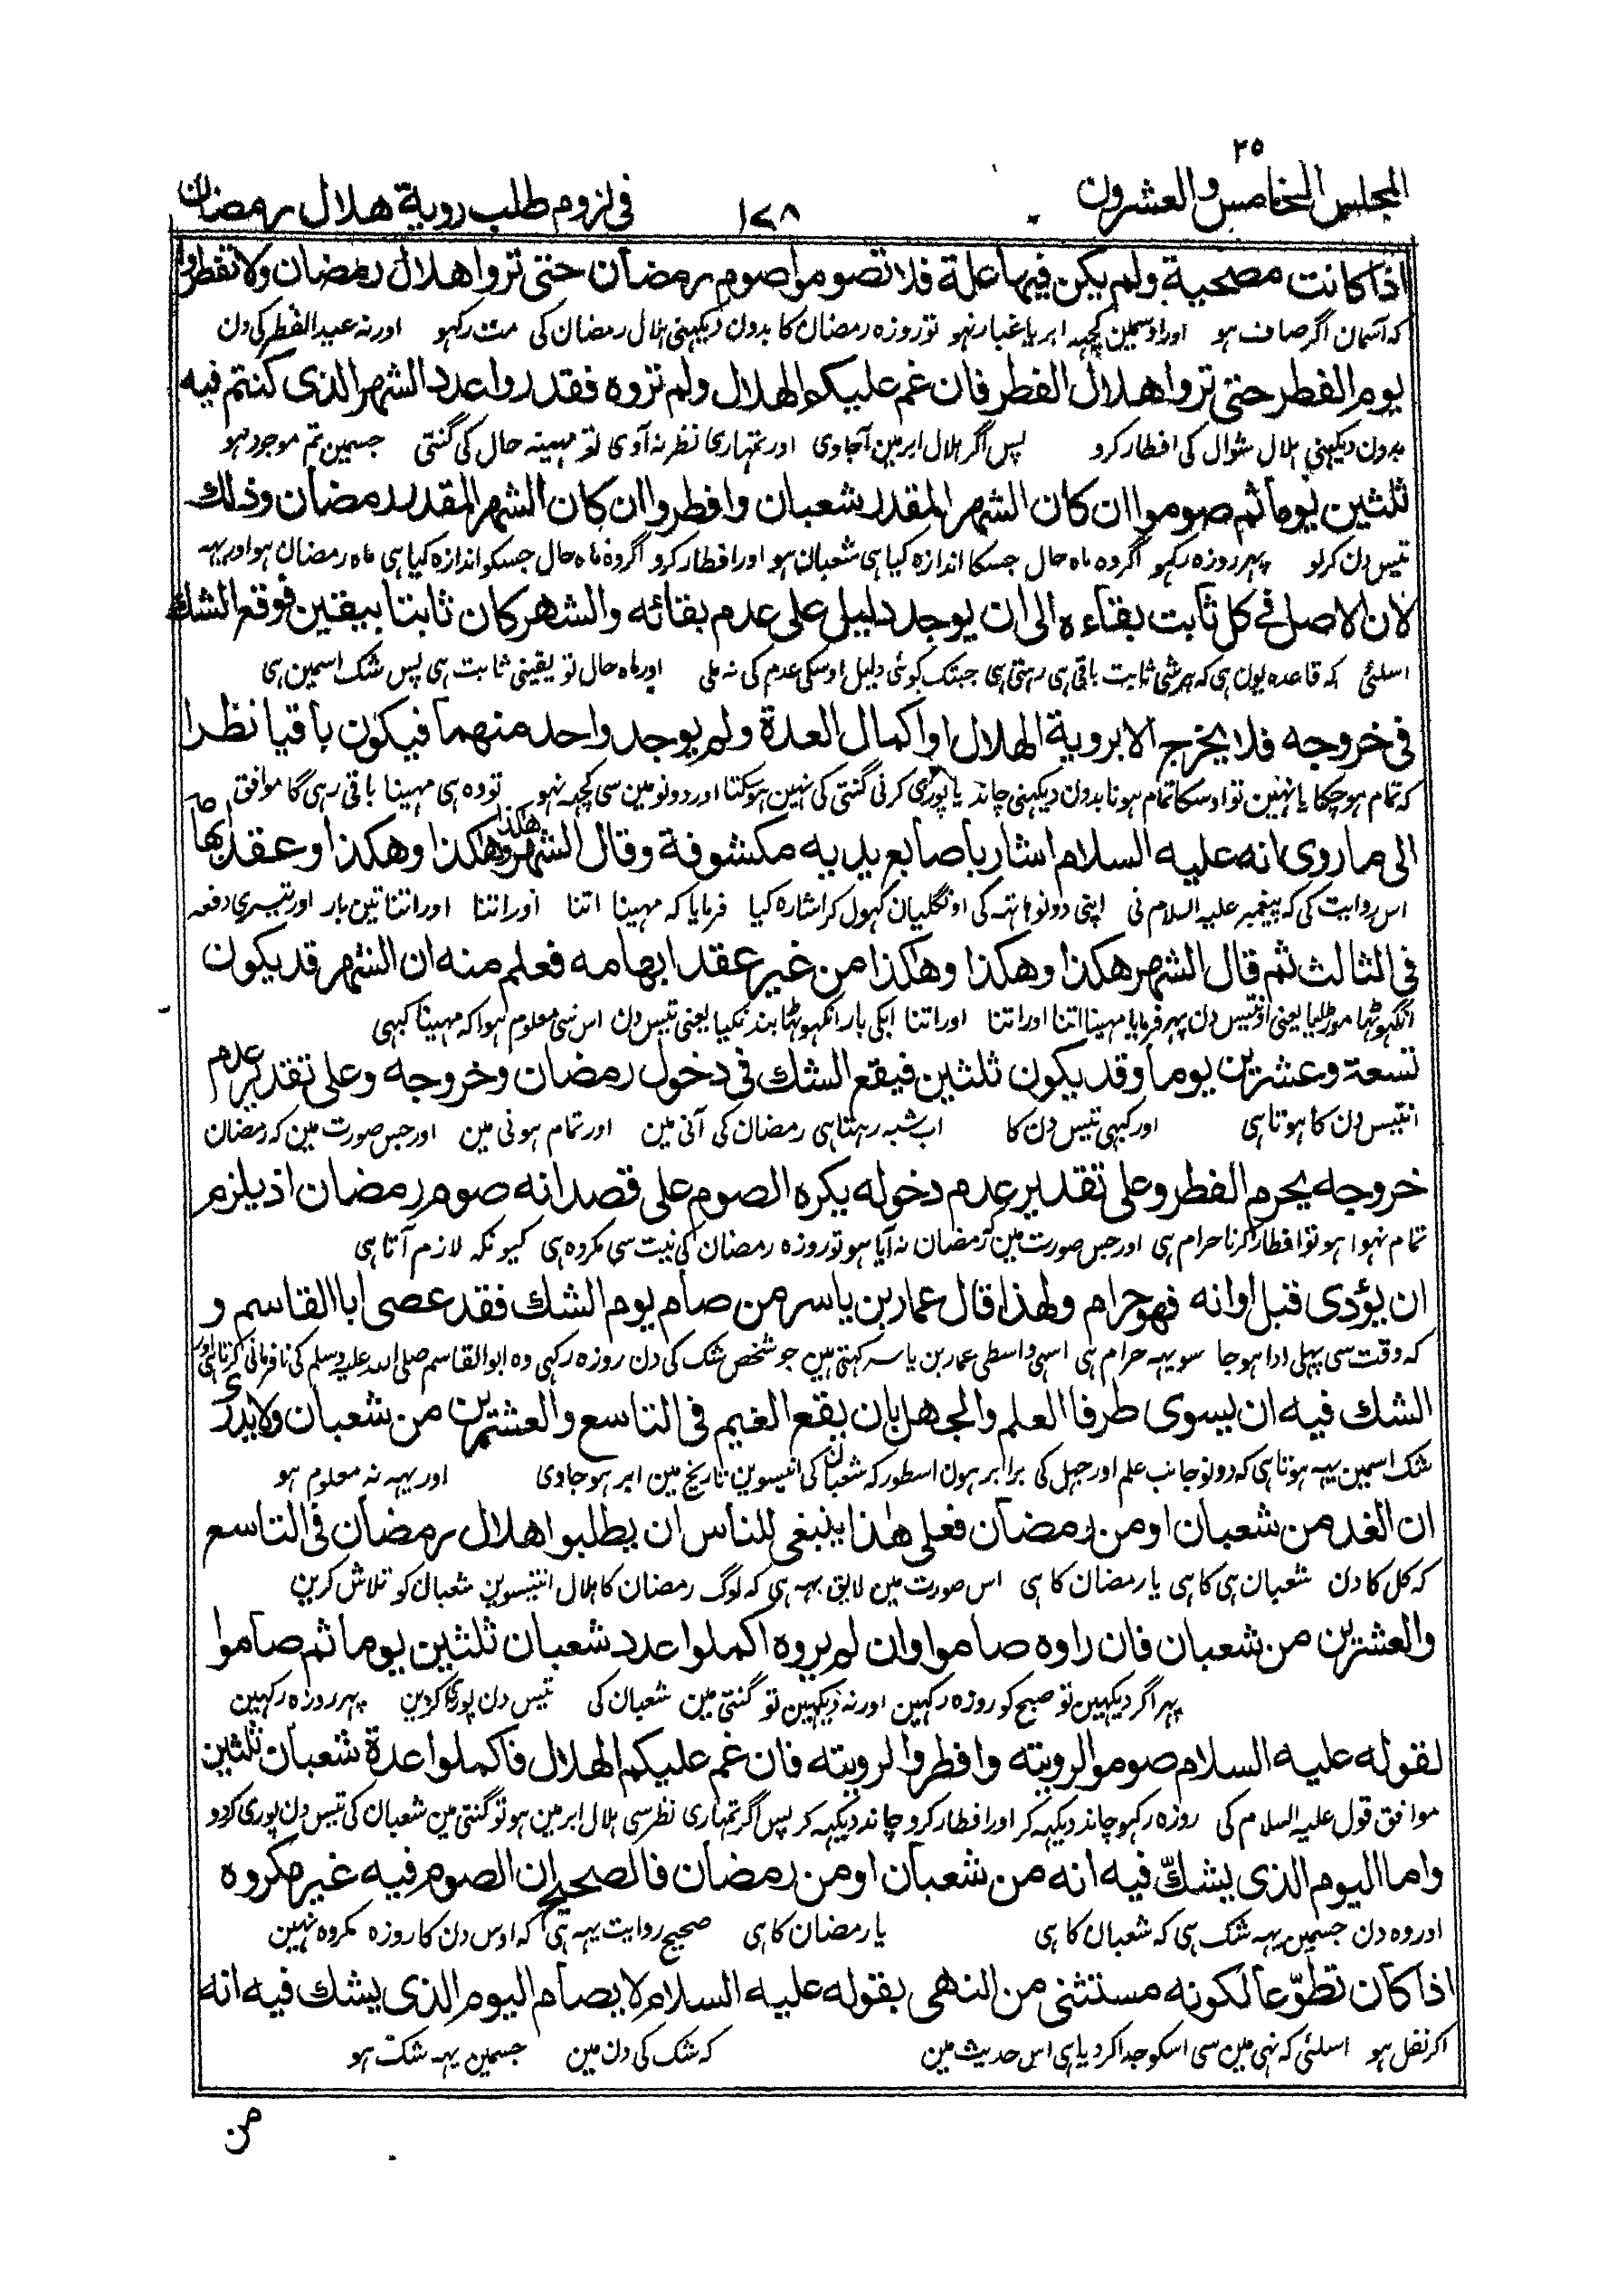 ٢٥
المجلس الخامس والعشرون ١٧٨ فى لزوم طلب روية هلال رمضان
اذا كانت مصحية ولم يكن فيها علة فلا تصوموا صوم رمضان حتى تروا هلال رمضان ولا تفطروا
که آسمان اگر صاف هو اور اوسمین کچهه ابر یا غبار نهو تو روزه رمضان کا بدون دیکهنی هلال رمضان کی مت رکهو اور نه عید الفطر کی دن
يوم الفطر حتى تروا هلال الفطر فان غم عليكم الهلال ولم تروه فقدروا عدد الشهر الذى كنتم فيه
بدون دیکهنی هلال شوال کی افطار کرو پس اگر هلال ابر مین آجاوی اور تمهاری نظر نه آوی تو مهینه حال کی گنتی جسمین تم موجود هو
ثلثين يوما ثم صوموا ان كان الشهر المقدر شعبان وافطروا ان كان الشهر المقدر رمضان وذلك
تیس دن کرلو پهر روزه رکهو اگر وه ماه حال جسکا اندازه کیا هی شعبان هو اور افطار کرو اگر وه ماه حال جسکو اندازه کیا هی ماه رمضان هو اور یهه
لان الاصل فى كل ثابت بقاءه الى ان يوجد دليل على عدم بقائه والشهر كان ثابتا بيقين فوقع الشك
اسلئی که قاعده یون هی که هر شی ثابت باقی هی رهتی هی جبتک کوئی دلیل اوسکی عدم کی نه ملی اور ماه حال تو یقینی ثابت هی پس شک اسمین هی
فى خروجه فلا يخرج الا بروية الهلال او اكمال العدة ولم يوجد واحد منهما فيكون باقيا نظرا
که تمام هوچکا یا نهین تو اوسکا تمام هونا بدون دیکهنی چاند یا پوری کرنی گنتی کی نهین هوسکتا اور دونو مین سی کچهه نهو تو وه هی مهینا باقی رهی گا موافق
الى ما روى انه عليه السلام اشار باصابع يديه مكشوفة وقال الشهر هكذا وهكذا وهكذا وعقد ابهامه
اس روایت کی که پیغمبر علیه السلام نی اپنی دونو هاتهه کی اونگلیان کهول کر اشاره کیا فرمایا که مهینا اتنا اور اتنا اور اتنا تین بار اور تیسری دفعه
فى الثالث ثم قال الشهر هكذا وهكذا وهكذا من غير عقد ابهامه فعلم منه ان الشهر قد يكون
انگهوٹها موڑ لیا یعنی اونتیس دن پهر فرمایا مهینا اتنا اور اتنا اور اتنا ابکی بار انگهوٹها بند نکیا یعنی تیس دن اس سی معلوم هوا که مهینا کبهی
تسعة وعشرين يوما وقد يكون ثلثين فيقع الشك فى دخول رمضان وخروجه وعلى تقدير عدم
انتیس دن کا هوتا هی اور کبهی تیس دن کا اب شبه رهتا هی رمضان کی آنی مین اور تمام هونی مین اور جس صورت مین که رمضان
خروجه يحرم الفطر وعلى تقدير عدم دخوله يكره الصوم على قصد انه صوم رمضان اذ يلزم
تمام نهوا هو تو افطار کرنا حرام هی اور جس صورت مین رمضان نه آیا هو تو روزه رمضان کی نیت سی مکروه هی کیونکه لازم آتا هی
ان يؤدى قبل اوانه فهو حرام ولهذا قال عمار بن ياسر من صام يوم الشك فقد عصى ابا القاسم و
که وقت سی پهلی ادا هو جا سو یهه حرام هی اسی واسطی عمار بن یاسر کهتی هین جو شخص شک کی دن روزه رکهی وه ابو القاسم صلی الله علیه وسلم کی نافرمانی کرتا هی اور
الشك فيه ان يسوى طرفا العلم والجهل بان يقع الغيم فى التاسع والعشرين من شعبان ولا يدرى
شک اسمین یهه هوتا هی که دونو جانب علم اور جهل کی برابر هون اسطور که شعبان کی انتیسوین تاریخ مین ابر هو جاوی اور یهه نه معلوم هو
ان الغد من شعبان او من رمضان فعلى هذا ينبغى للناس ان يطلبوا هلال رمضان فى التاسع
که کل کا دن شعبان هی کا هی یا رمضان کا هی اس صورت مین لایق یهه هی که لوگ رمضان کا هلال انتیسوین شعبان کو تلاش کرین
والعشرين من شعبان فان راوه صاموا وان لم يروه اكملوا عدد شعبان ثلثين يوما ثم صاموا
پهر اگر دیکهین تو صبح کو روزه رکهین اور نه دیکهین تو گنتی مین شعبان کی تیس دن پوری کردین پهر روزه رکهین
لقوله عليه السلام صوموا لرويته وافطروا لرويته فان غم عليكم الهلال فاكملوا عدة شعبان ثلثين
موافق قول علیه السلام کی روزه رکهو چاند دیکهه کر اور افطار کرو چاند دیکهه کر پس اگر تمهاری نظر سی هلال ابر مین هو تو گنتی مین شعبان کی تیس دن پوری کردو
واما اليوم الذى يشكّ فيه انه من شعبان او من رمضان فالصحيح ان الصوم فيه غير مكروه
اور وه دن جسمین یهه شک هی که شعبان کا هی یا رمضان کا هی صحیح روایت یهه هی که اوس دن کا روزه مکروه نهین
اذا كان تطوّعا لكونه مستثنى من النهى بقوله عليه السلام لا يصام اليوم الذى يشك فيه انه
اگر نفل هو اسلئی که نهی مین سی اسکو جدا کر دیا هی اس حدیث مین که شک کی دن مین جسمین یهه شک هو
من